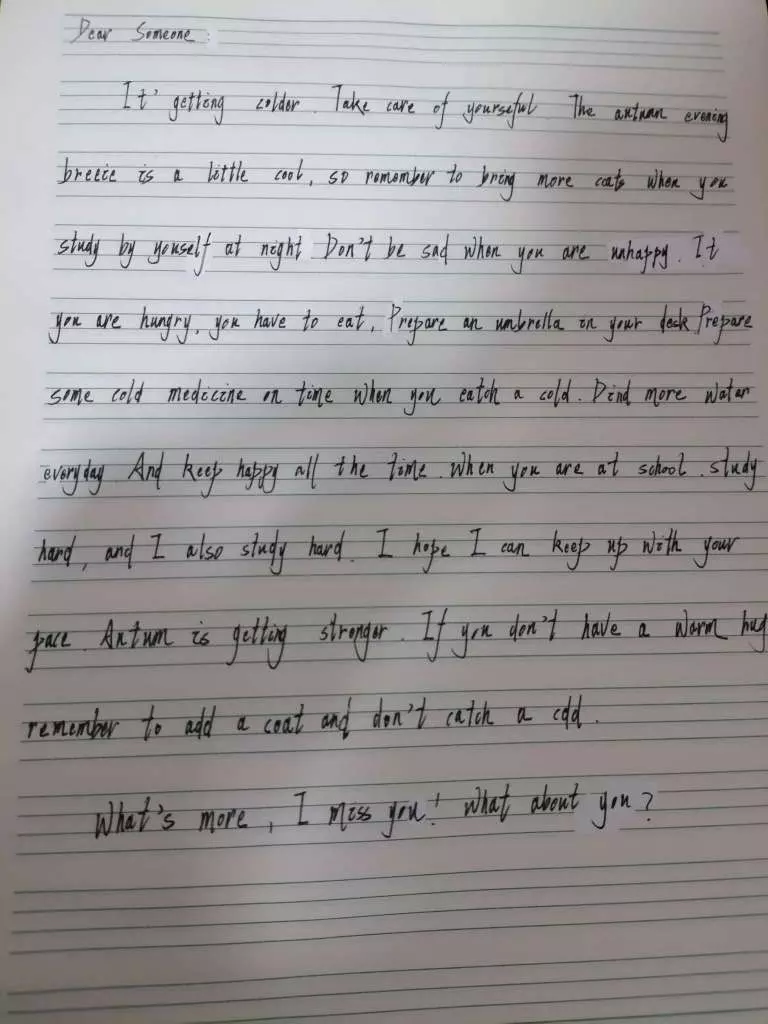 Dear Someone:
It' getting colder. Take care of yourseful. The autumn evening
breeze is a little cool, so remember to bring more coats when you
study by youself at night Don't be sad when you are unhappy. If
you are hungry, you have to eat, Prepare an umbrella in your desk Prepare
some cold medicine on time when you catch a cold. Dind more water
everyday And keep happy all the time. When you are at school. study
hard, and I also study hard. I hope I can keep up with your
pace. Autum is getting stronger. If you don't have a warm hug
remember to add a coat and don't catch a cold.
What's more, I miss you! What about you?